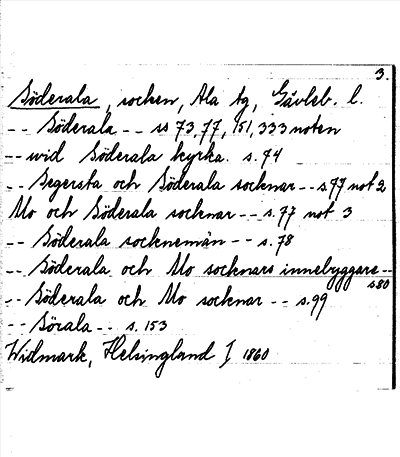 3.
Söderala, socken, Ala tg, Gävleb. l.
-- Söderala -- ss 73, 77, 151, 333 noten
-- wid Söderala kyrka. s. 74
-- Segersta och Söderala socknar -- s. 77 not 2
Mo och Söderala socknar -- s. 77 not 3
-- Söderala socknemän -- s. 78
-- Söderala och Mo socknars innebyggare --
s 80
-- Söderala och Mo socknar -- s. 99
-- Sörala -- s. 153
Widmark, Helsingland I 1860